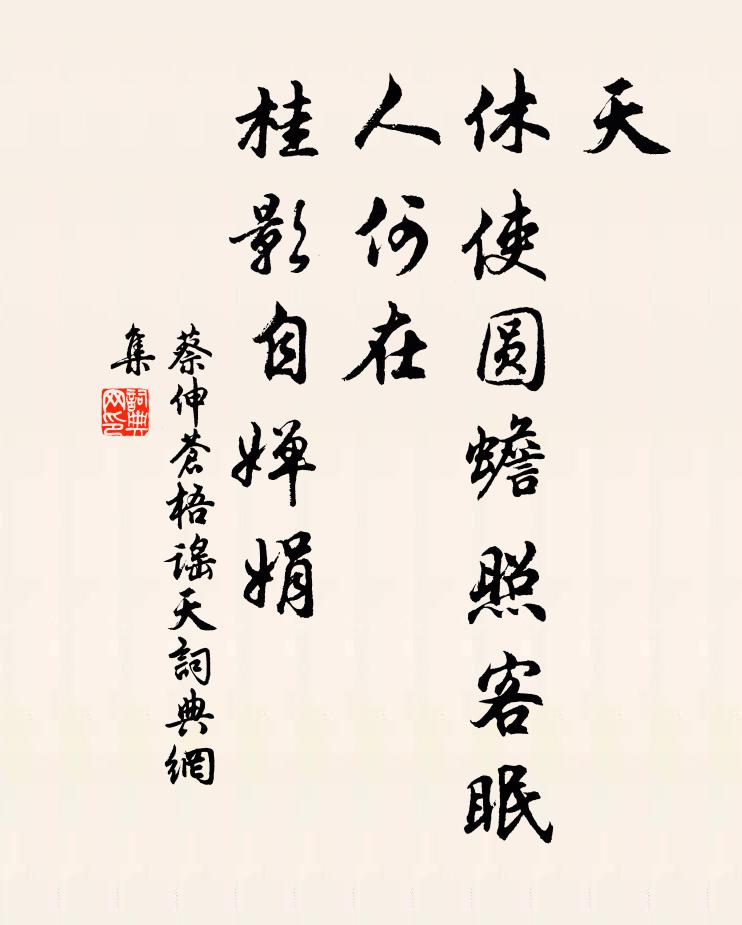 天
休使圆蟾照客眠
人何在
桂影自婵娟
蔡伸蒼梧謠天詞典網
集
詞典
网印